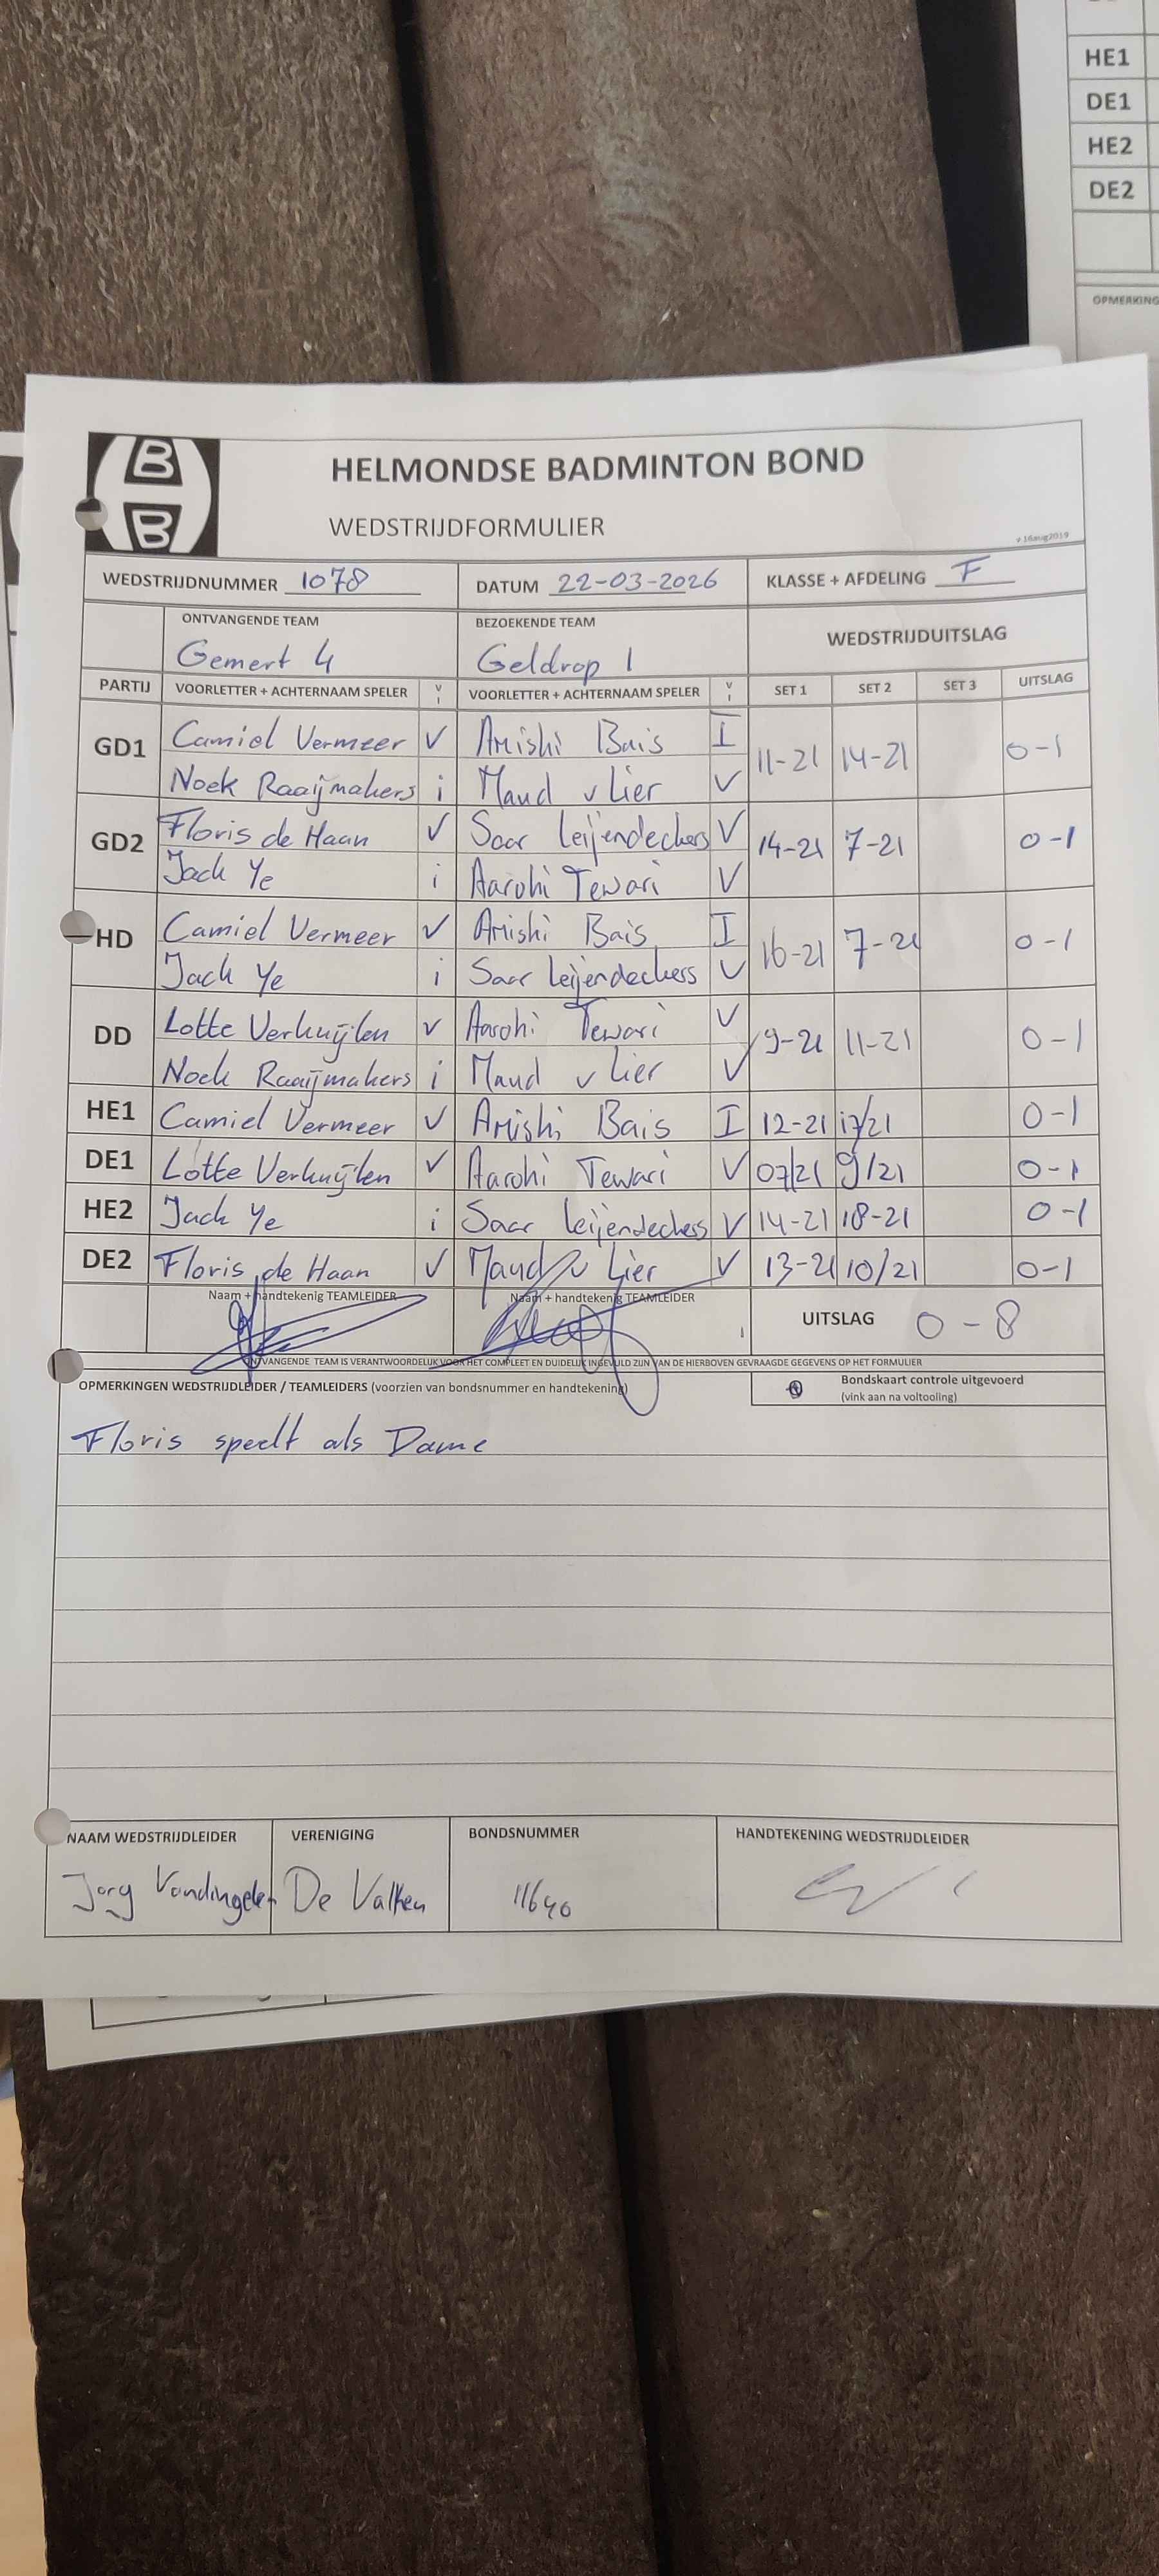 HE1
DE1
HE2
DE2
OPMERKING
B
B
HELMONDSE BADMINTON BOND
WEDSTRIJDFORMULIER
v 16aug2019
WEDSTRIJDNUMMER 1078 DATUM 22-03-2026 KLASSE + AFDELING F
ONTVANGENDE TEAM BEZOEKENDE TEAM WEDSTRIJDUITSLAG
Gemert 4 Geldrop 1
PARTIJ VOORLETTER + ACHTERNAAM SPELER V i VOORLETTER + ACHTERNAAM SPELER V i SET 1 SET 2 SET 3 UITSLAG
GD1 Camiel Vermeer V Arishi Bais I 11-21 14-21 0-1
Noek Raaijmakers i Maud v Lier V
GD2 Floris de Haan V Saar Leijendeckers V 14-21 7-21 0-1
Jack Ye i Aarohi Tewari V
HD Camiel Vermeer V Arishi Bais I 16-21 7-21 0-1
Jack Ye i Saar Leijendeckers V
DD Lotte Verkuijlen V Aarohi Tewari V 9-21 11-21 0-1
Noek Raaijmakers i Maud v Lier V
HE1 Camiel Vermeer V Arishi Bais I 12-21 17/21 0-1
DE1 Lotte Verkuijlen V Aarohi Tewari V 07/21 9/21 0-1
HE2 Jack Ye i Saar Leijendeckers V 14-21 18-21 0-1
DE2 Floris de Haan V Maud v Lier V 13-21 10/21 0-1
Naam + handtekenig TEAMLEIDER Naam + handtekenig TEAMLEIDER UITSLAG 0-8
ONTVANGENDE TEAM IS VERANTWOORDELIJK VOOR HET COMPLEET EN DUIDELIJK INGEVULD ZIJN VAN DE HIERBOVEN GEVRAAGDE GEGEVENS OP HET FORMULIER
OPMERKINGEN WEDSTRIJDLEIDER / TEAMLEIDERS (voorzien van bondsnummer en handtekening) Bondskaart controle uitgevoerd
(vink aan na voltooling)
Floris speelt als Dame
NAAM WEDSTRIJDLEIDER VERENIGING BONDSNUMMER HANDTEKENING WEDSTRIJDLEIDER
Jorg Vandingelen De Valken 11640